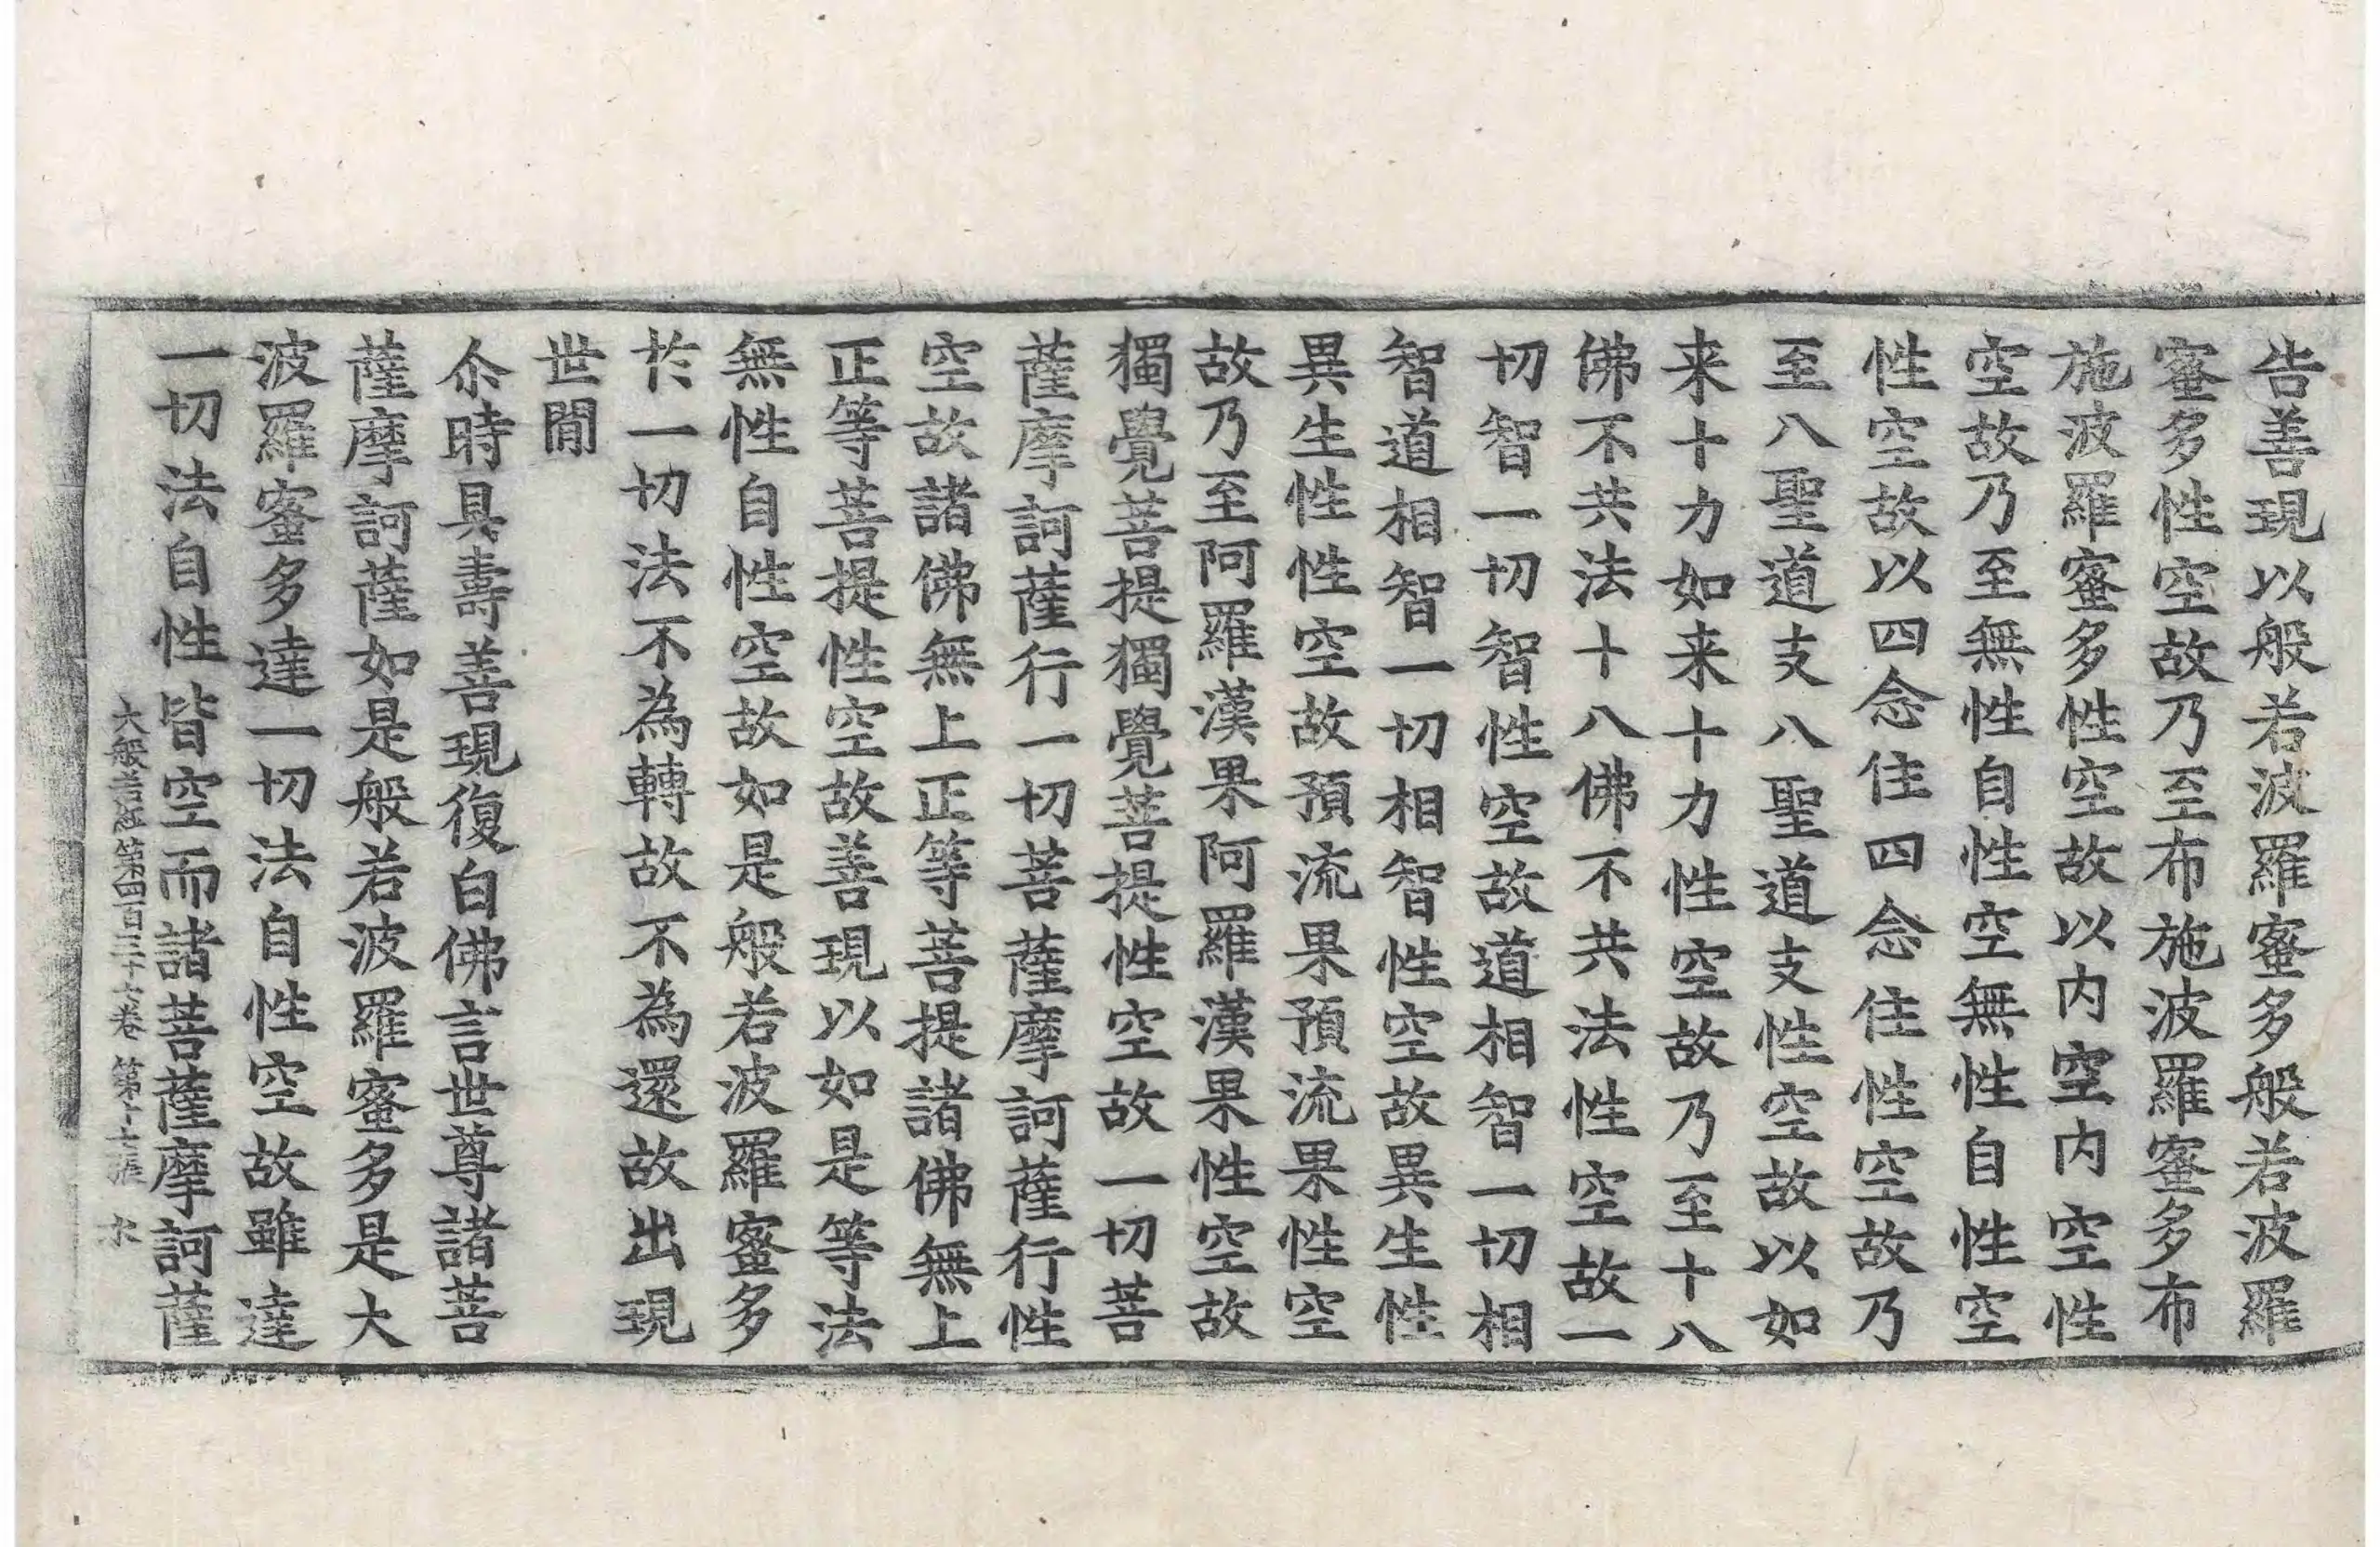 告善現以般若波羅蜜多般若波羅
蜜多性空故乃至布施波羅蜜多布
施波羅蜜多性空故以内空内空性
空故乃至無性自性空無性自性空
性空故以四念住四念住性空故乃
至八聖道支八聖道支性空故以如
来十力如来十力性空故乃至十八
佛不共法十八佛不共法性空故一
切智一切智性空故道相智一切相
智道相智一切相智性空故異生性
異生性性空故預流果預流果性空
故乃至阿羅漢果阿羅漢果性空故
獨覺菩提獨覺菩提性空故一切菩
薩摩訶薩行一切菩薩摩訶薩行性
空故諸佛無上正等菩提諸佛無上
正等菩提性空故善現以如是等法
無性自性空故如是般若波羅蜜多
於一切法不為轉故不為還故出現
世間
尒時具壽善現復白佛言世尊諸菩
薩摩訶薩如是般若波羅蜜多是大
波羅蜜多達一切法自性空故雖達
一切法自性皆空而諸菩薩摩訶薩
大般若經第四百三十六卷 第十七張